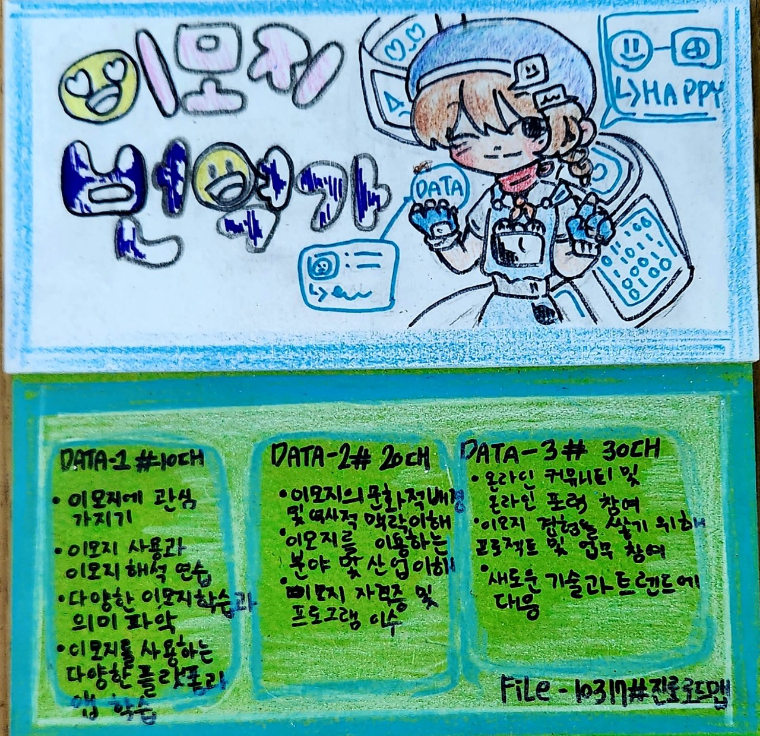 이모지
번역가
HAPPY
DATA
DATA-1 #10대
• 이모지에 관심
가지기
• 이모지 사용과
이모지 해석 연습
• 다양한 이모지 학습과
의미 파악
• 이모지를 사용하는
다양한 플랫폼과
앱 학습
DATA-2# 20대
• 이모지의 문화적 배경
및 역사적 맥락 이해
• 이모지를 이용하는
분야 및 산업 이해
• 이모지 자격증 및
프로그램 이수
DATA-3# 30대
• 온라인 커뮤니티 및
온라인 포럼 참여
• 이모지 경험을 쌓기 위해
프로젝트 및 업무 참여
• 새로운 기술과 트렌드에
대응
File - 10317#진로로드맵